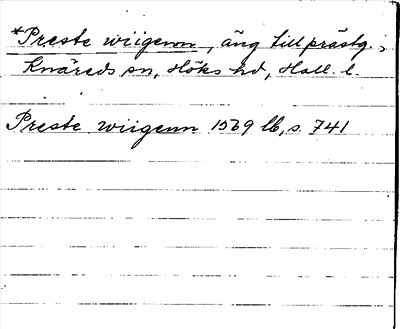 *Preste wiigenn, äng till prästg.,
Knäreds sn, Höks hd, Hall. l.
Preste wiigenn 1569 lb, s. 741